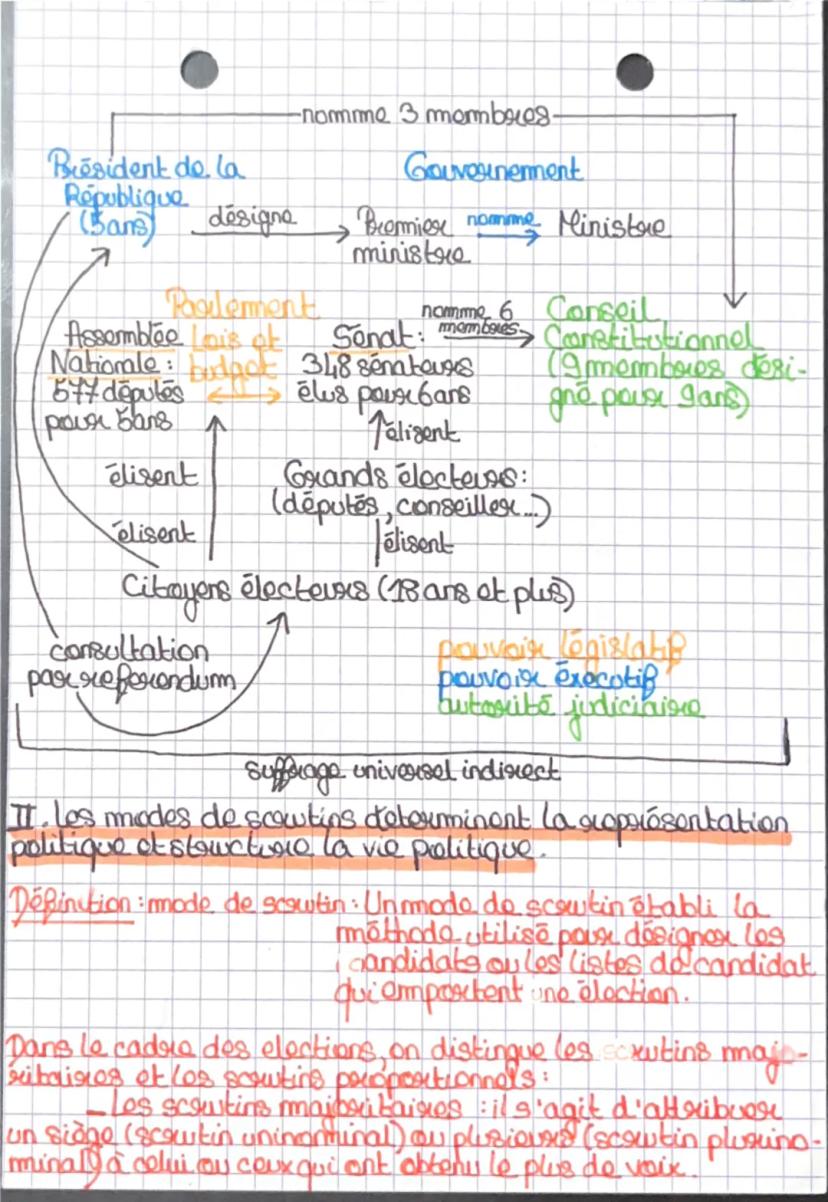 nomme 3 membres
Président de la
République
(5ans)
désigne
Gouvernement
Premier
ministre
nomme
Ministre
Parlement
Lois et
budget
Assemblée
Nationale :
577 députés
pour 5ans
Sénat :
348 sénateurs
élus pour 6ans
nomme 6
membres
Conseil
Constitutionnel
(9 membres dési-
gné pour 9ans)
élisent
élisent
élisent
Grands électeurs :
(députés, conseiller...)
élisent
Citoyens électeurs (18 ans et plus)
consultation
par referendum
pouvoir législatif
pouvoir éxecutif
autorité judiciaire
suffrage universel indirect
II. Les modes de scrutins déterminent la représentation
politique et structure la vie politique.
Définition : mode de scrutin : Un mode de scrutin établi la
méthode utilisé pour désigner les
candidats ou les listes de candidat
qui emportent une élection.
Dans le cadre des elections, on distingue les scrutins majo-
ritaires et les scrutins proportionnels :
_ Les scrutins majoritaires : il s'agit d'attribuer
un siège (scrutin uninominal) ou plusieurs (scrutin plurino-
minal) à celui ou ceux qui ont obtenu le plus de voix.